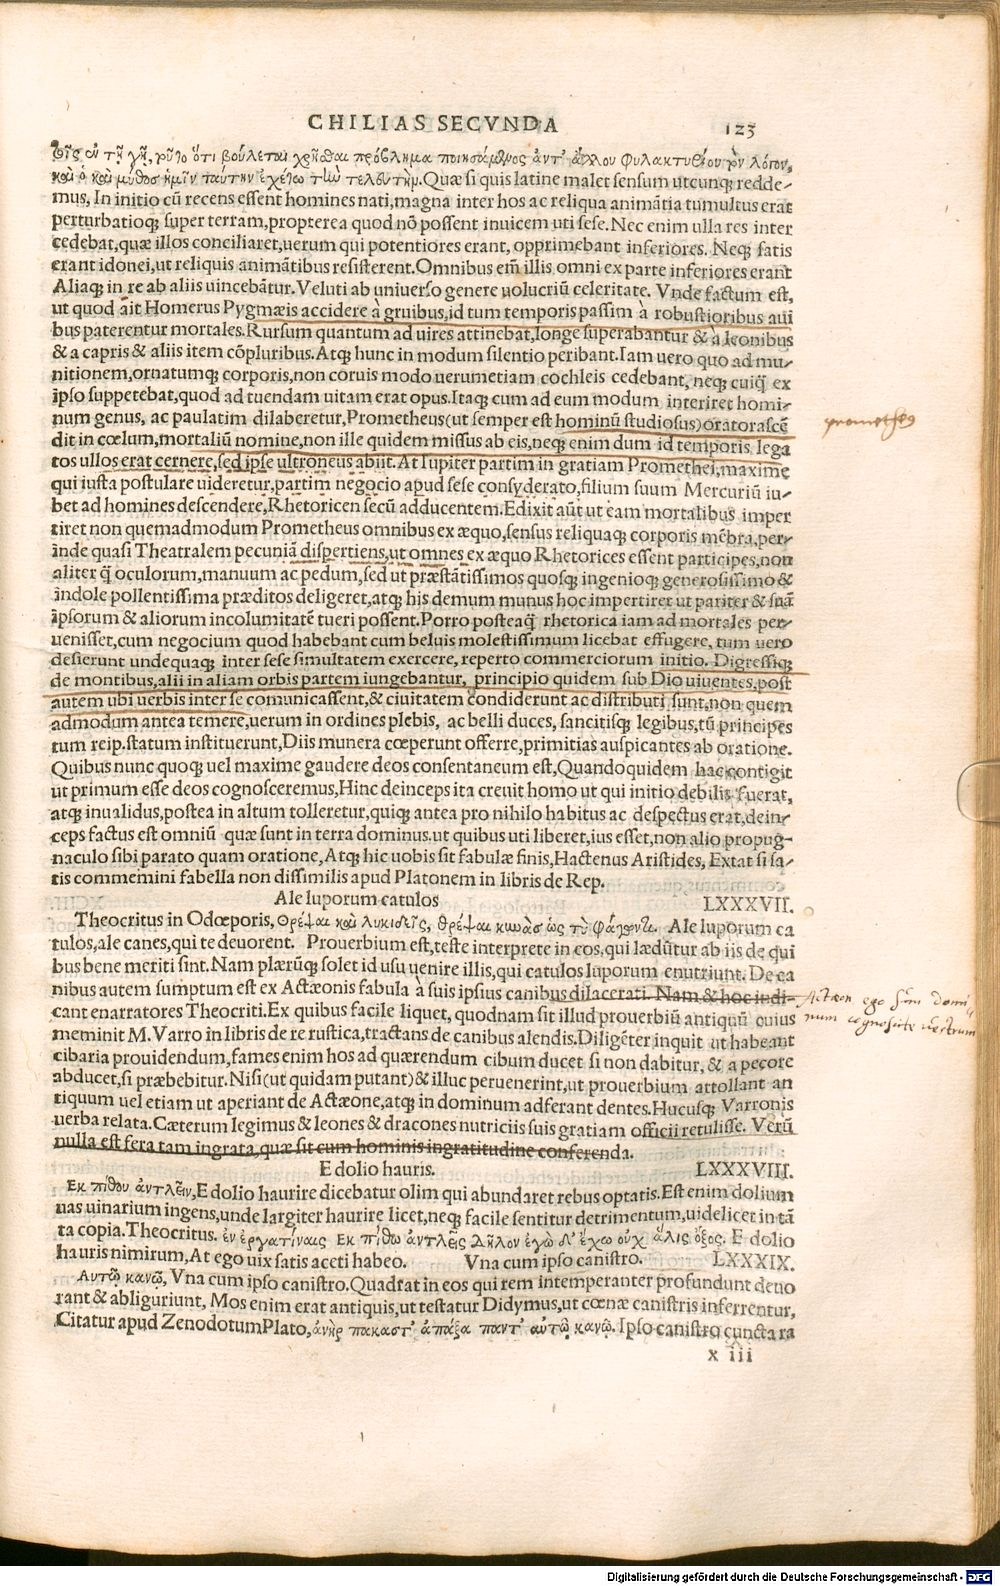 CHILIAS SECVNDA 123
τῆς ἐν τῇ γῇ, τοῦτο ὅτι βούλεται χρῆσθαι πρόβλημα ποιησάμενος ἀντ' ἄλλου φυλακτηρίου τὸν λόγον,
καὶ ὁ καὶ μῦθος ἡμῖν ταύτην ἐχέτω τὴν τελευτήν. Quæ si quis latine malet sensum utcunq; redde-
mus, In initio cū recens essent homines nati, magna inter hos ac reliqua animātia tumultus erat
perturbatioq; super terram, propterea quod nō possent inuicem uti sese. Nec enim ulla res inter
cedebat, quæ illos conciliaret, uerum qui potentiores erant, opprimebant inferiores. Neq; satis
erant idonei, ut reliquis animātibus resisterent. Omnibus em̄ illis omni ex parte inferiores erant
Aliaq; in re ab aliis uincebātur. Veluti ab uniuerso genere uolucriū celeritate. Vnde factum est,
ut quod ait Homerus Pygmæis accidere à gruibus, id tum temporis passim à robustioribus aui
bus paterentur mortales. Rursum quantum ad uires attinebat, longe superabantur & à leonibus
& a capris & aliis item cōpluribus. Atq; hunc in modum silentio peribant. Iam uero quo ad mu-
nitionem, ornatumq; corporis, non coruis modo uerumetiam cochleis cedebant, neq; cuiq̄ ex
ipso suppetebat, quod ad tuendam uitam erat opus. Itaq; cum ad eum modum interiret homi-
num genus, ac paulatim dilaberetur, Prometheus (ut semper est hominū studiosus) orator ascē
dit in cœlum, mortaliū nomine, non ille quidem missus ab eis, neq; enim dum id temporis lega
tos ullos erat cernere, sed ipse ultroneus abiit. At Iupiter partim in gratiam Promethei, maxime
qui iusta postulare uideretur, partim negocio apud sese consyderato, filium suum Mercuriū iu-
bet ad homines descendere, Rhetoricen secū adducentem. Edixit aūt ut eam mortalibus imper
tiret non quemadmodum Prometheus omnibus ex æquo, sensus reliquaq; corporis mēbra, per-
inde quasi Theatralem pecuniā dispertiens, ut omnes ex æquo Rhetorices essent participes, non
aliter q̄ oculorum, manuum ac pedum, sed ut præstātissimos quosq; ingenioq; generosissimo &
indole pollentissima præditos deligeret, atq; his demum munus hoc impertiret ut pariter & suā
ipsorum & aliorum incolumitatē tueri possent. Porro posteaq̄ rhetorica iam ad mortales per-
uenisset, cum negocium quod habebant cum beluis molestissimum licebat effugere, tum uero
desierunt undequaq; inter sese simultatem exercere, reperto commerciorum initio. Digressiq;
de montibus, alii in aliam orbis partem iungebantur, principio quidem sub Dio uiuentes, post
autem ubi uerbis inter se comunicassent, & ciuitatem condiderunt ac distributi sunt, non quem
admodum antea temere, uerum in ordines plebis, ac belli duces, sancitisq; legibus, tū principes
tum reip. statum instituerunt, Diis munera cœperunt offerre, primitias auspicantes ab oratione.
Quibus nunc quoq; uel maxime gaudere deos consentaneum est, Quandoquidem hac contigit
ut primum esse deos cognosceremus, Hinc deinceps ita creuit homo ut qui initio debilis fuerat,
atq; inualidus, postea in altum tolleretur, quiq; antea pro nihilo habitus ac despectus erat, dein-
ceps factus est omniū quæ sunt in terra dominus. ut quibus uti liberet, ius esset, non alio propug-
naculo sibi parato quam oratione, Atq; hic uobis sit fabulæ finis, Hactenus Aristides, Extat si sa-
tis commemini fabella non dissimilis apud Platonem in libris de Rep.
Ale luporum catulos LXXXVII.
Theocritus in Odœporis, θρέψαι καὶ λυκιδεῖς, θρέψαι κύνας ὡς τὺ φάγωντι. Ale luporum ca
tulos, ale canes, qui te deuorent. Prouerbium est, teste interprete in eos, qui lædūtur ab iis de qui
bus bene meriti sint. Nam plærūq; solet id usu uenire illis, qui catulos luporum enutriunt. De ca
nibus autem sumptum est ex Actæonis fabula à suis ipsius canibus dilacerati. Nam & hoc indi-
cant enarratores Theocriti. Ex quibus facile liquet, quodnam sit illud prouerbiū antiquū cuius
meminit M. Varro in libris de re rustica, tractans de canibus alendis. Diligēter inquit ut habeant
cibaria prouidendum, fames enim hos ad quærendum cibum ducet si non dabitur, & a pecore
abducet, si præbebitur. Nisi (ut quidam putant) & illuc peruenerint, ut prouerbium attollant an
tiquum uel etiam ut aperiant de Actæone, atq; in dominum adferant dentes. Hucusq; Varronis
uerba relata. Cæterum legimus & leones & dracones nutriciis suis gratiam officii retulisse. Verū
nulla est fera tam ingrata, quæ sit cum hominis ingratitudine conferenda.
E dolio hauris. LXXXVIII.
Ἐκ πίθου ἀντλεῖν, E dolio haurire dicebatur olim qui abundaret rebus optatis. Est enim dolium
uas uinarium ingens, unde largiter haurire licet, neq; facile sentitur detrimentum, uidelicet in tā
ta copia. Theocritus. ἐν ἐργατίναις Ἐκ πίθω ἀντλεῖς δῆλον ἐγὼ δ' ἔχω οὐχ ἅλις ὄξος. E dolio
hauris nimirum, At ego uix satis aceti habeo. Vna cum ipso canistro. LXXXIX.
Αὐτῷ κανῷ, Vna cum ipso canistro. Quadrat in eos qui rem intemperanter profundunt deuo
rant & abliguriunt, Mos enim erat antiquis, ut testatur Didymus, ut cœnæ canistris inferrentur,
Citatur apud Zenodotum Plato, ἀνὴρ πακαστ' ἁπάξα παντ' αὐτῷ κανῷ. Ipso canistro cuncta ra
x iii
prometheus
Actæon ego sum domi
num cognoscite uestrum
Digitalisierung gefördert durch die Deutsche Forschungsgemeinschaft - DFG